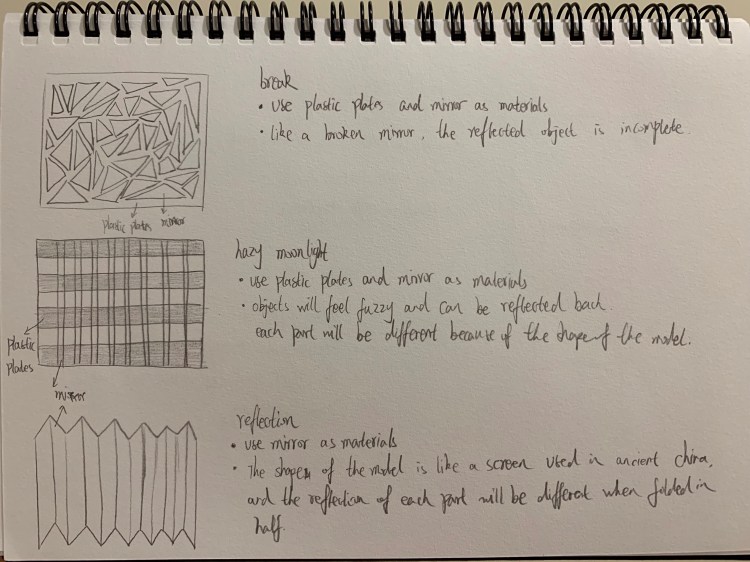 break
• use plastic plates and mirror as materials
• Like a broken mirror, the reflected object is incomplete.
plastic plates mirror
hazy moonlight
• use plastic plates and mirror as materials
• objects will feel fuzzy and can be reflected back.
each part will be different because of the shape of the model.
plastic
plates
mirror
reflection
• use mirror as materials
• The shape of the model is like a screen used in ancient china,
and the reflection of each part will be different when folded in
half.